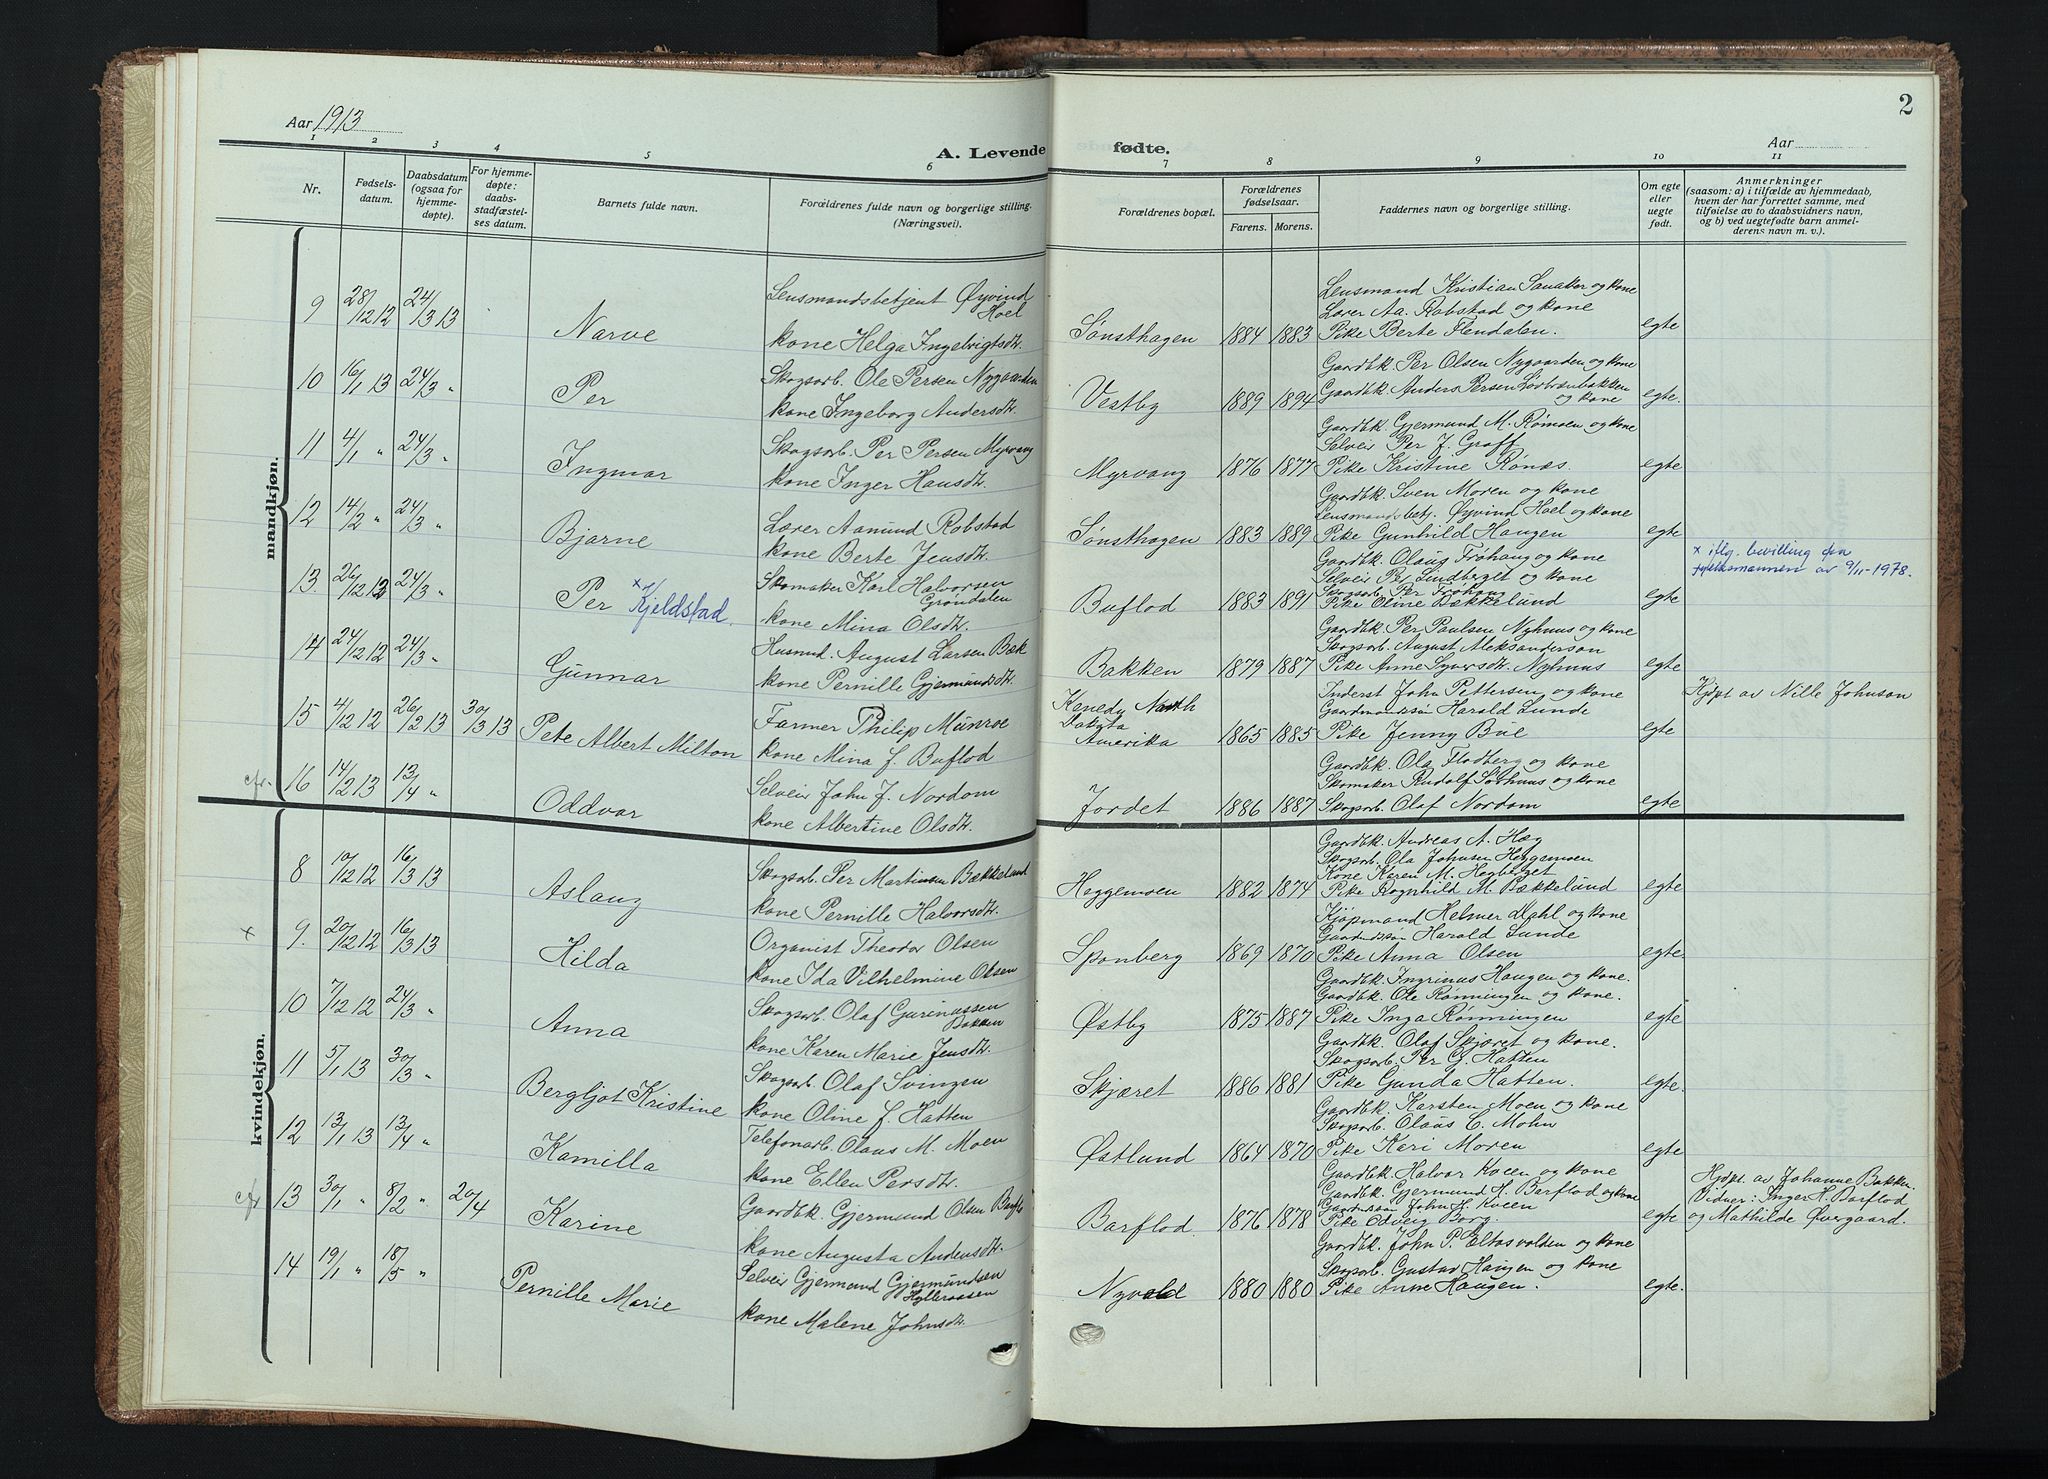 2
Aar 1913
Aar
A. Levende fødte.
1 2 3 4 5 6 7 8 9 10 11
Nr.
Fødsels-
datum.
Daabsdatum
(ogsaa for
hjemme-
døpte).
For hjemme-
døpte:
daabs-
stadfæstel-
ses datum.
Barnets fulde navn.
Forældrenes fulde navn og borgerlige stilling.
(Næringsvei).
Forældrenes bopæl.
Forældrenes
fødselsaar.
Farens. Morens.
Faddernes navn og borgerlige stilling.
Om egte
eller
uegte
født.
Anmerkninger
(saasom: a) i tilfælde av hjemmedaab,
hvem der har forrettet samme, med
tilføielse av to daabsvidners navn,
og b) ved uegtefødte barn anmel-
derens navn m. v.).
mandkjøn.
9 28/12 12 24/3 13 Narve
Lensmandsbetjent Øyvind
Hoel
kone Helga Ingebrigtsdtr.
Sønsthagen 1884 1883
Lensmand Kristian Sanaker og kone
Lærer Aa. Robstad og kone
Pike Berte Flendalen.
egte
10 16/1 13 24/3 " Per
Skogsarb. Ole Persen Nygaarden
kone Ingeborg Andersdtr.
Vestby 1889 1894
Gaardbk. Per Olsen Nygaarden og kone
Gaardbk. Anders Persen Sørbrænbakken
og kone
egte.
11 4/1 " 24/3 " Ingmar
Skogsarb. Per Persen Myrvang
kone Inger Hansdtr.
Myrvang 1876 1877
Gaardbk. Gjermund M. Rømoen og kone
Selveir Per J. Graff
Pike Kristine Rønæs.
egte
12 14/2 " 24/3 " Bjarne
Lærer Aamund Robstad
kone Berte Jensdtr.
Sønsthagen 1883 1889
Gaardbk. Sven Moren og kone
Lensmandsbetj. Øyvind Hoel og kone
Pike Gunhild Haugen
egte
13. 26/12 12 24/3 " Per x Kjeldstad.
Skomaker Karl Halvorsen
Grøndalen
kone Mina Olsdtr.
Buflod 1883 1891
Gaardbk. Olaus Frøhaug og kone
Selveir Per Lindberget og kone
Skogsarb. Per Frøhaug
Pike Oline Bækkelund
egte
x iflg. bevilling fra
fylkesmannen av 9/11-1978.
14 24/12 12 24/3 " Gunnar
Husmd. August Larsen Bæk
kone Pernille Gjermundsdtr.
Bakken 1879 1887
Gaardbk. Per Paulsen Nyhuus og kone
Skogsarb. August Aleksanderson
Pike Anne Syversdtr. Nyhuus
egte
15 4/12 12 26/12 13 30/3 13 Pete Albert Milton
Farmer Philip Munroe
kone Mina f. Buflod
Kenedy North
Dakota
Amerika 1865 1885
Inderst John Pettersen og kone
Gaardmandssøn Harald Lunde
Pike Jenny Bue
egte
Hjdpt. av Nille Johnson
cfr. 16 14/2 13 13/4 " Oddvar
Selveir John J. Nordom
kone Albertine Olsdtr.
Jordet 1886 1887
Gaardbk. Ola Flodberg og kone
Skomaker Rudolf Sørhuus og kone
Skogsarb. Olaf Nordom
egte
kvindekjøn.
8 10/12 12 16/3 13 Aslaug
Skogsarb. Per Martinsen Bækkelund
kone Pernille Halvorsdtr.
Heggemoen 1882 1874
Gaardbk. Andreas A. Hæg
Skogsarb. Ola Johnsen Heggemoen
Kone Karen M. Høgberget
Pike Rognhild M. Bækkelund
egte
x 9. 20/12 12 16/3 13 Hilda
Organist Theodor Olsen
kone Ida Vilhelmine Olsen
Sponberg 1869 1870
Kjøpmand Helmer Dahl og kone
Gaardmdssøn Harald Lunde
Pike Anna Olsen
egte.
10 7/12 12 24/3 " Anna
Skogsarb. Olaf Gurinassen
Bakken
kone Karen Marie Jensdtr.
Østby 1875 1887
Gaardbk. Ingrinus Haugen og kone.
Gaardbk. Ole Rønningen og kone.
Pike Inga Rønningen
egte
11 5/1 13 30/3 " Bergljot Kristine
Skogsarb. Olaf Svingen
kone Oline f. Hatten
Skjæret 1886 1881
Gaardbk. Olaf Skjæret og kone.
Skogsarb. Per G. Hatten
Pike Gunda Hatten.
egte.
12 13/1 13 13/4 " Kamilla
Telefonarb. Olaus M. Moen
kone Ellen Persdtr.
Østlund 1864 1870
Gaardbk. Karsten Moen og kone
Skogsarb. Olaus E. Mohn
Pike Keri Moren
egte
cfr 13 30/1 " 8/2 " 20/4 Karine
Gaardbk. Gjermund Olsen Barflo
kone Augusta Andersdtr.
Barflod. 1876 1878
Gaardbk. Halvor Kveen og kone
Gaardbk. Gjermund H. Barflod og kone
Gaardmdssøn John H. Kveen
Pike Odveig Borg.
egte
Hjdpt. av Johanne Bakken.
Vidner: Inger H. Barflod
og Mathilde Øvergaard.
14 19/1 " 18/5 " Pernille Marie
Selveir Gjermund Gjermundsen
Hylleraasen
kone Malene Johnsdtr.
Nyvold 1880 1880
Gaardbk. John P. Eltasvolden og kone
Skogsarb. Gustav Haugen og kone
Pike Anne Haugen.
egte.